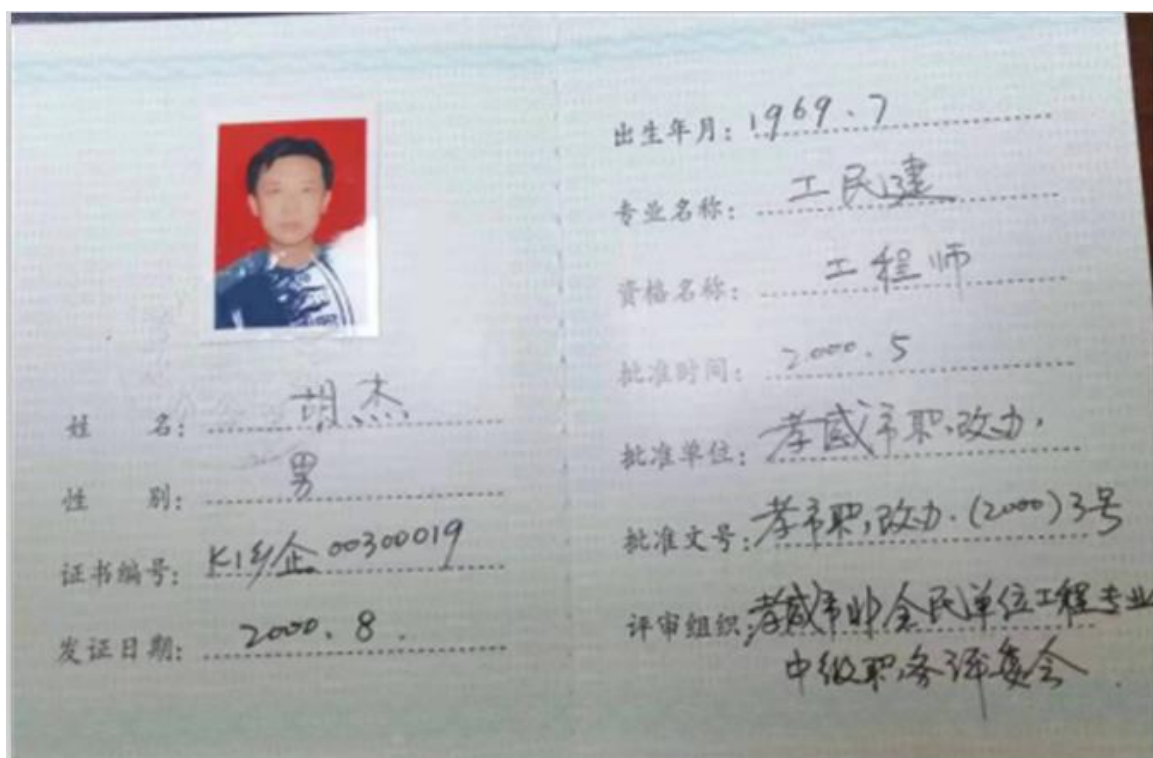 姓 名: 胡杰
性 别: 男
证书编号: K1乡企00300019
发证日期: 2000.8.
出生年月: 1969.7
专业名称: 工民建
资格名称: 工程师
批准时间: 2000.5
批准单位: 孝感市职改办.
批准文号: 孝市职改办.(2000)3号
评审组织: 孝感市非全民单位工程专业
中级职务评委会